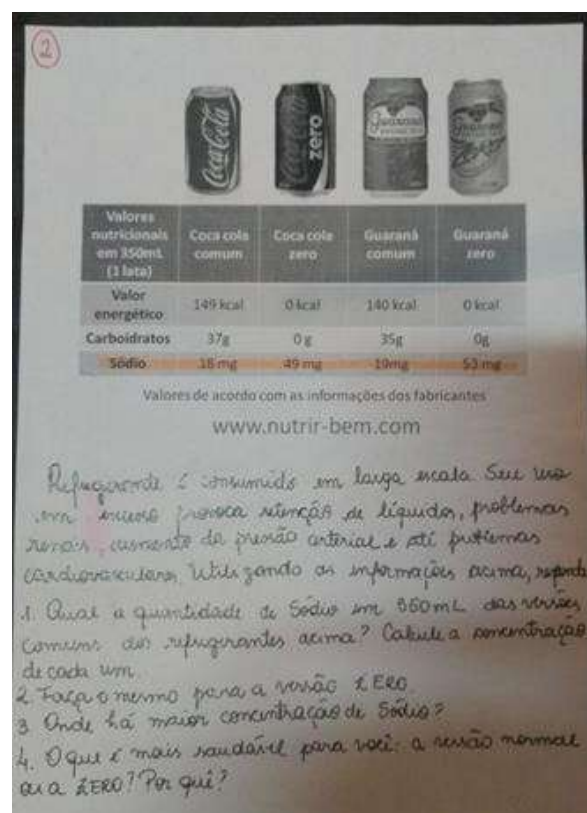 2
Coca-Cola
Coca-Cola zero
Guaraná
Guaraná Zero
Valores nutricionais em 350mL (1 lata) Coca cola comum Coca cola zero Guaraná comum Guaraná zero
Valor energético 149 kcal 0 kcal 140 kcal 0 kcal
Carboidratos 37g 0 g 35g 0g
Sódio 18 mg 49 mg 19mg 53 mg
Valores de acordo com as informações dos fabricantes
www.nutrir-bem.com
Refrigerante é consumido em larga escala. Seu uso
em excesso provoca retenção de líquidos, problemas
renais, aumento da pressão arterial e até problemas
cardiovasculares. Utilizando as informações acima, responda
1. Qual a quantidade de Sódio em 350mL das versões
comuns dos refrigerantes acima? Calcule a concentração
de cada um.
2. Faça o mesmo para a versão ZERO.
3 Onde há maior concentração de Sódio?
4. O que é mais saudável para você: a versão normal
ou a ZERO? Por quê?